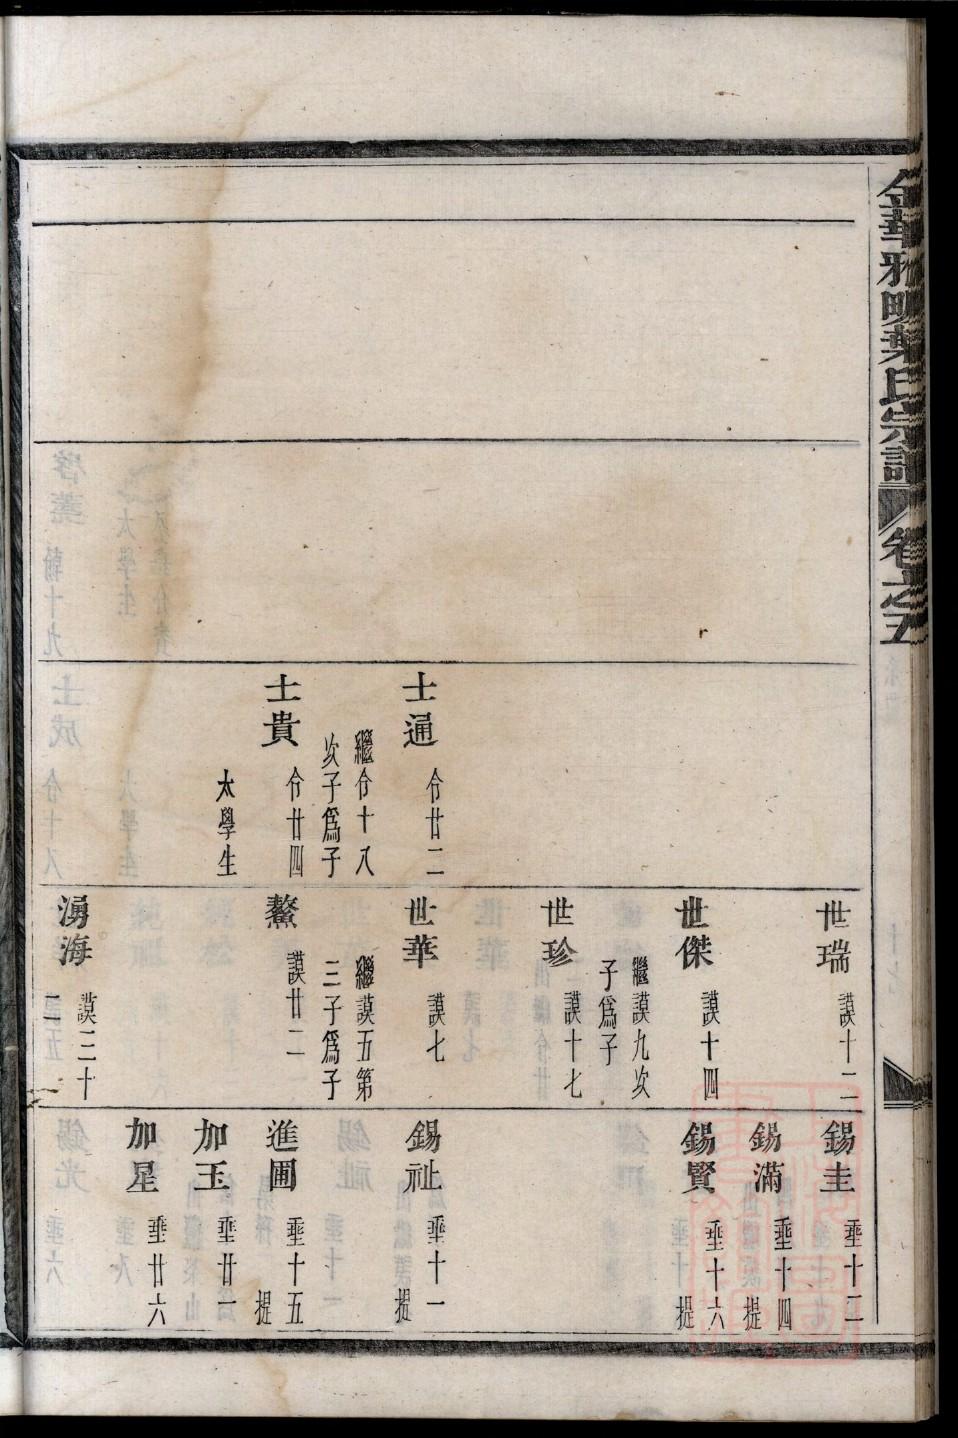 金華雅畈葉氏宗譜
卷之五
士通
令廿二
繼令十八
次子爲子
士貴
令廿四
太學生
世瑞
謨十二
世傑
謨十四
繼謨九次
子爲子
世珍
謨十七
世華
謨七
繼謨五第
三子爲子
鰲
謨廿二
湧海
謨三十
二
錫圭
垂十二
錫滿
垂十四
提
錫賢
垂十六
提
錫祉
垂十一
提
進圃
垂十五
提
加玉
垂廿一
加星
垂廿六